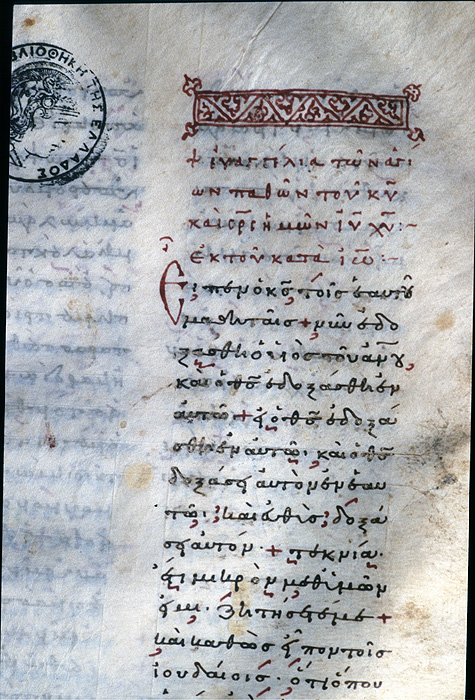 ΒΛΙΟΘΗΚΗ ΤΗΣ ΕΛΛΑΔΟΣ
+ ἐυαγγέλια τῶν ἁγί
ων παθῶν τοῦ κῡ
καὶ ... ἡμῶν ἰῡ χῡ :~
ἐκ τοῦ κατὰ ἰω :
Εἶπεν ὁ κς̄ τοῖς ἑαυτοῦ
μαθηταῖς + νῦν ἐδο
ξάσθη ὁ υἱὸς τοῦ ἀνου,
καὶ ὁ θς̄ ἐδοξάσθη ἐν
αὐτῶ + εἰ ὁ θς̄ ἐδοξά
σθη ἐν αὐτῶ· καὶ ὁ θς̄
δοξάσει αὐτὸν ἐν ἑαυ
τῶ· καὶ εὐθὺς δοξά
σει αὐτόν· + τεκνία·
ἔτι μικρὸν μεθ' ἡμῶν
εἰμι· ζητήσετέ με +
καὶ καθὼς εἶπον τοῖς
ἰουδαίοις· ὅτι ὅπου